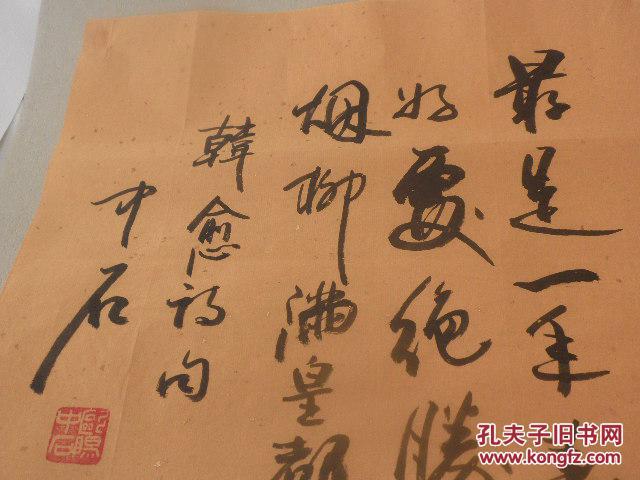 最是一年
好處絕勝
烟柳滿皇都
韓愈詩句
中石
歐陽中石
孔夫子旧书网
www.kongfz.com